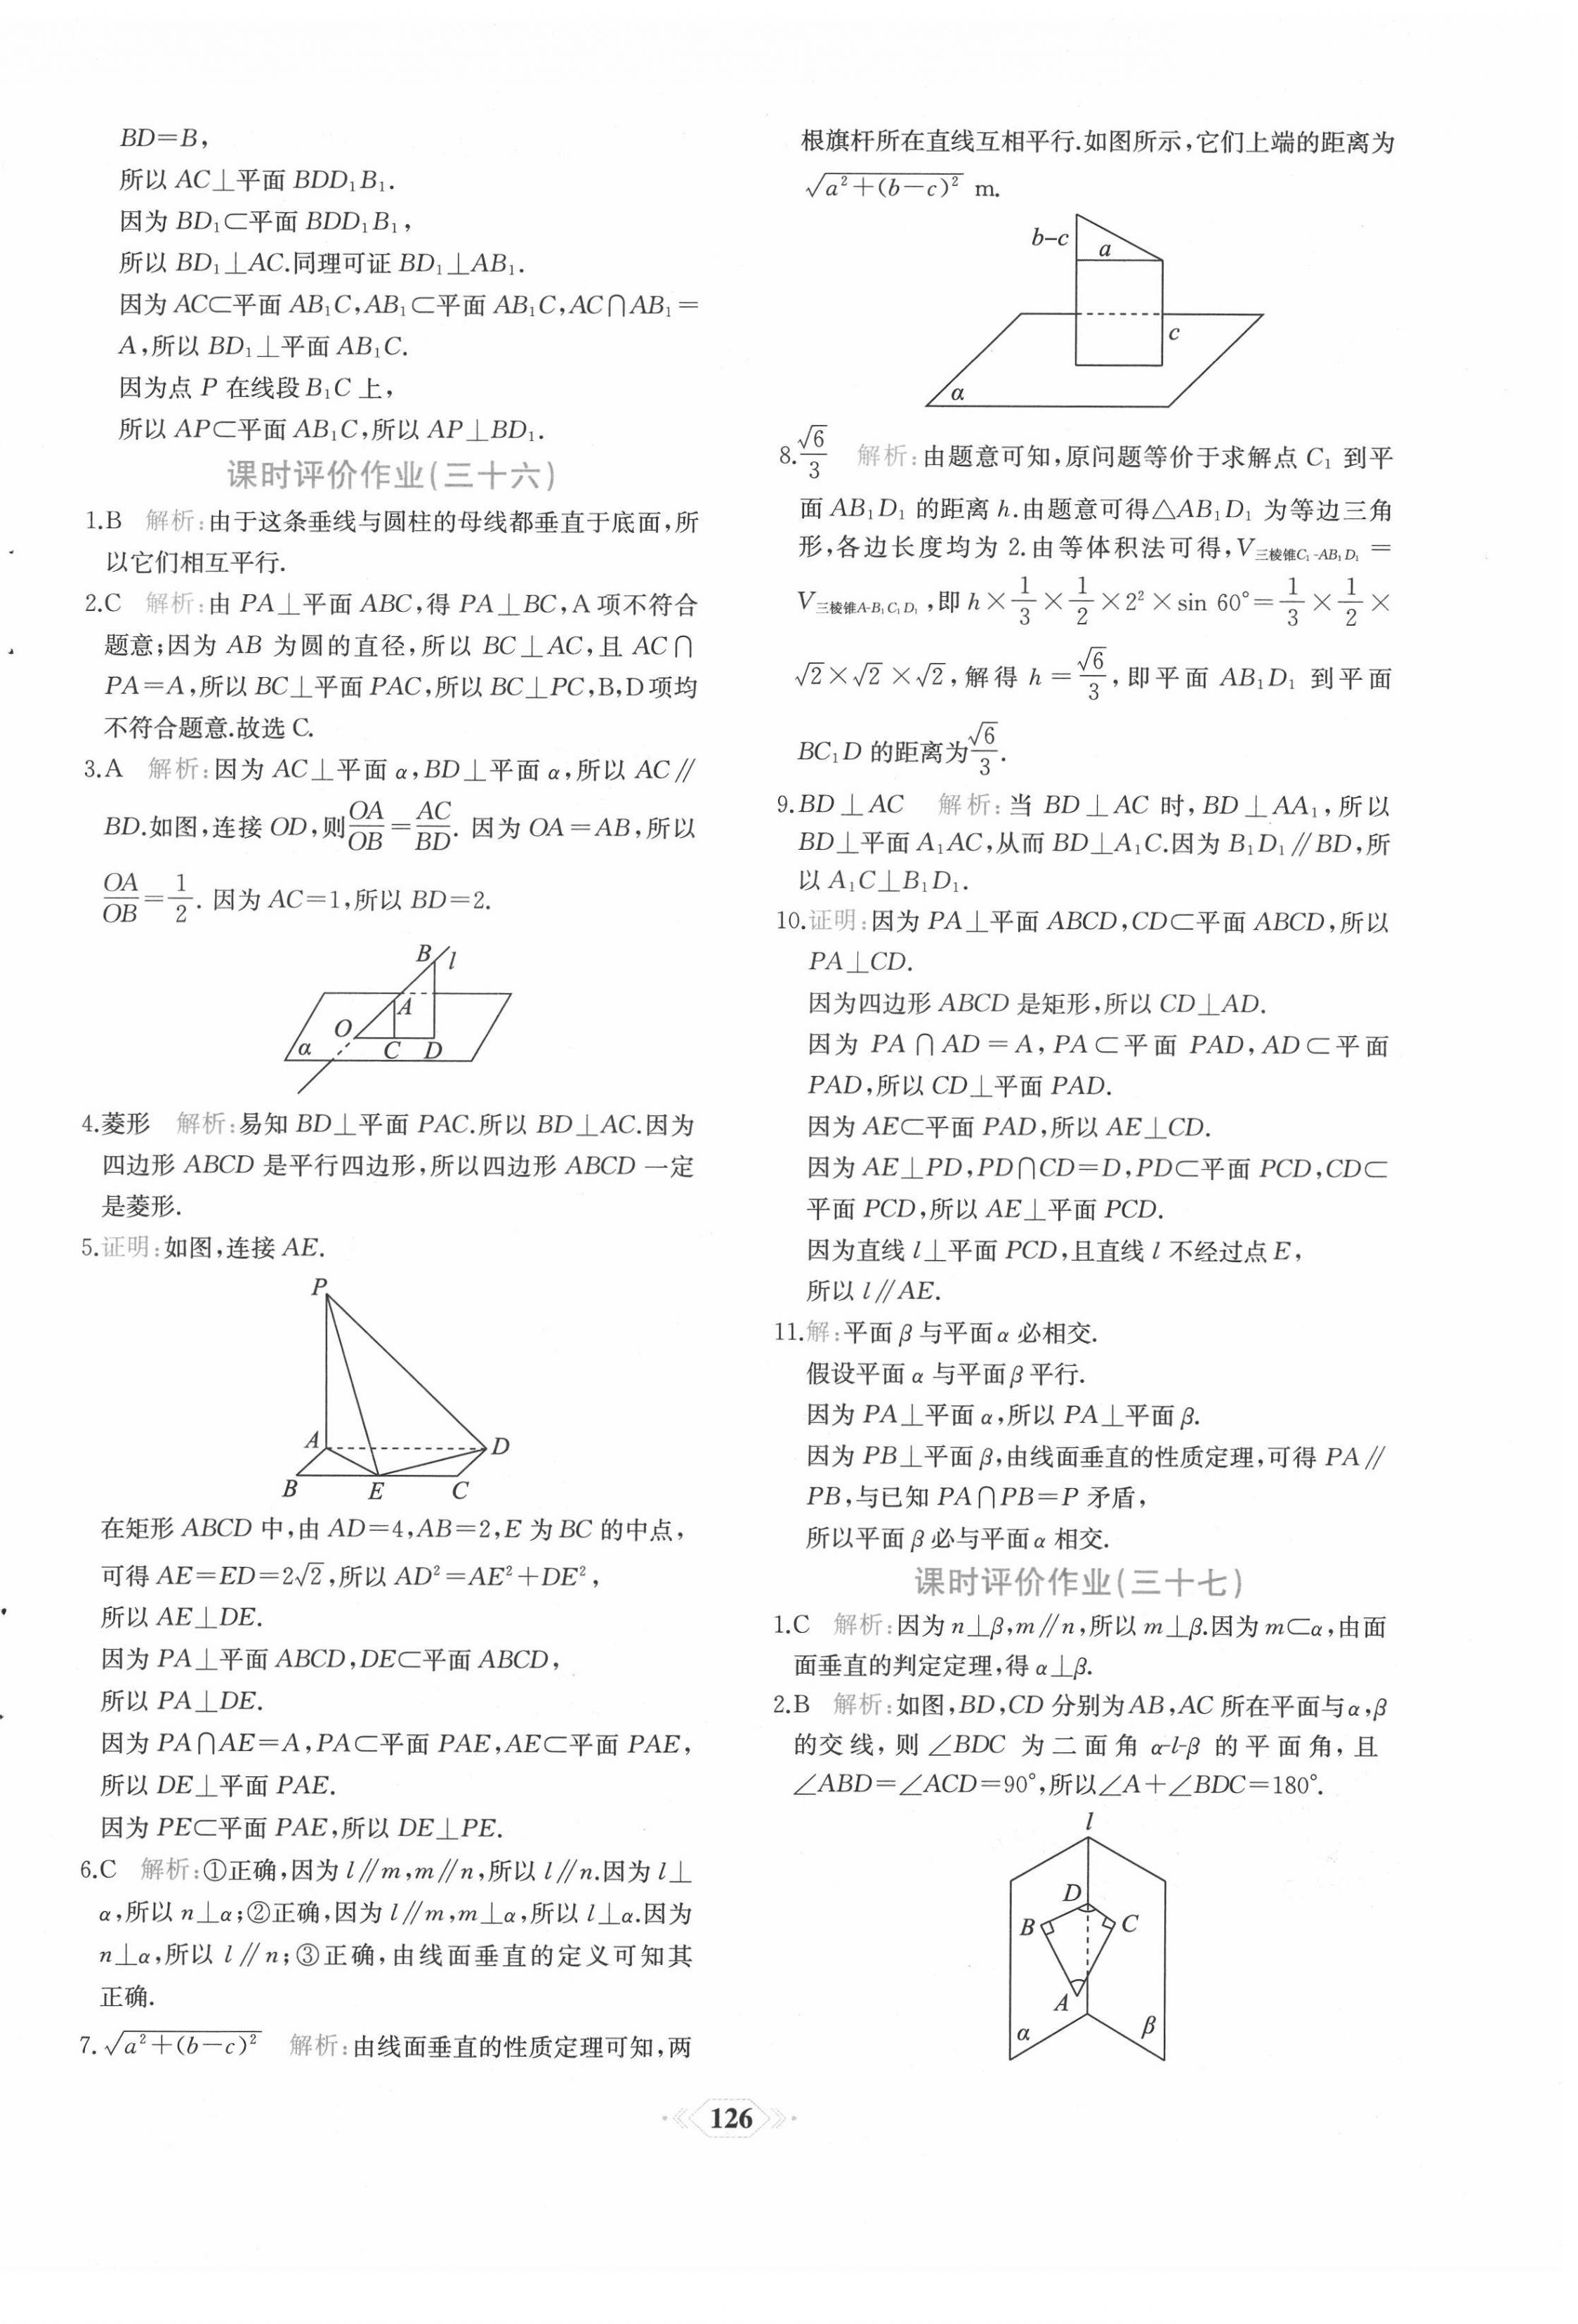 BD=B,
所以 AC⊥平面 BDD₁B₁.
因为 BD₁⊂平面 BDD₁B₁,
所以 BD₁⊥AC.同理可证 BD₁⊥AB₁.
因为 AC⊂平面 AB₁C,AB₁⊂平面 AB₁C,AC∩AB₁=
A,所以 BD₁⊥平面 AB₁C.
因为点 P 在线段 B₁C 上,
所以 AP⊂平面 AB₁C,所以 AP⊥BD₁.
课时评价作业(三十六)
1.B 解析:由于这条垂线与圆柱的母线都垂直于底面,所
以它们相互平行.
2.C 解析:由 PA⊥平面 ABC,得 PA⊥BC,A 项不符合
题意;因为 AB 为圆的直径,所以 BC⊥AC,且 AC∩
PA=A,所以 BC⊥平面 PAC,所以 BC⊥PC,B,D 项均
不符合题意.故选 C.
3.A 解析:因为 AC⊥平面 α,BD⊥平面 α,所以 AC∥
BD.如图,连接 OD,则OA/OB=AC/BD. 因为 OA=AB,所以
OA/OB=1/2. 因为 AC=1,所以 BD=2.
B
l
A
O
α
C
D
4.菱形 解析:易知 BD⊥平面 PAC.所以 BD⊥AC.因为
四边形 ABCD 是平行四边形,所以四边形 ABCD 一定
是菱形.
5.证明:如图,连接 AE.
P
A
D
B
E
C
在矩形 ABCD 中,由 AD=4,AB=2,E 为 BC 的中点,
可得 AE=ED=2√2,所以 AD²=AE²+DE²,
所以 AE⊥DE.
因为 PA⊥平面 ABCD,DE⊂平面 ABCD,
所以 PA⊥DE.
因为 PA∩AE=A,PA⊂平面 PAE,AE⊂平面 PAE,
所以 DE⊥平面 PAE.
因为 PE⊂平面 PAE,所以 DE⊥PE.
6.C 解析:①正确,因为 l∥m,m∥n,所以 l∥n.因为 l⊥
α,所以 n⊥α;②正确,因为 l∥m,m⊥α,所以 l⊥α.因为
n⊥α,所以 l∥n;③正确,由线面垂直的定义可知其
正确.
7.√(a²+(b-c)²) 解析:由线面垂直的性质定理可知,两
根旗杆所在直线互相平行.如图所示,它们上端的距离为
√(a²+(b-c)²) m.
b-c
a
c
α
8.√6/3 解析:由题意可知,原问题等价于求解点 C₁ 到平
面 AB₁D₁ 的距离 h.由题意可得△AB₁D₁ 为等边三角
形,各边长度均为 2.由等体积法可得,V三棱锥C₁-AB₁D₁=
V三棱锥A-B₁C₁D₁,即 h×1/3×1/2×2²×sin 60°=1/3×1/2×
√2×√2×√2,解得 h=√6/3,即平面 AB₁D₁ 到平面
BC₁D 的距离为√6/3.
9.BD⊥AC 解析:当 BD⊥AC 时,BD⊥AA₁,所以
BD⊥平面 A₁AC,从而 BD⊥A₁C.因为 B₁D₁∥BD,所
以 A₁C⊥B₁D₁.
10.证明:因为 PA⊥平面 ABCD,CD⊂平面 ABCD,所以
PA⊥CD.
因为四边形 ABCD 是矩形,所以 CD⊥AD.
因为 PA∩AD=A,PA⊂平面 PAD,AD⊂平面
PAD,所以 CD⊥平面 PAD.
因为 AE⊂平面 PAD,所以 AE⊥CD.
因为 AE⊥PD,PD∩CD=D,PD⊂平面 PCD,CD⊂
平面 PCD,所以 AE⊥平面 PCD.
因为直线 l⊥平面 PCD,且直线 l 不经过点 E,
所以 l∥AE.
11.解:平面 β 与平面 α 必相交.
假设平面 α 与平面 β 平行.
因为 PA⊥平面 α,所以 PA⊥平面 β.
因为 PB⊥平面 β,由线面垂直的性质定理,可得 PA∥
PB,与已知 PA∩PB=P 矛盾,
所以平面 β 必与平面 α 相交.
课时评价作业(三十七)
1.C 解析:因为 n⊥β,m∥n,所以 m⊥β.因为 m⊂α,由面
面垂直的判定定理,得 α⊥β.
2.B 解析:如图,BD,CD 分别为 AB,AC 所在平面与 α,β
的交线,则 ∠BDC 为二面角 α-l-β 的平面角,且
∠ABD=∠ACD=90°,所以∠A+∠BDC=180°.
l
D
B
C
A
α
β
126